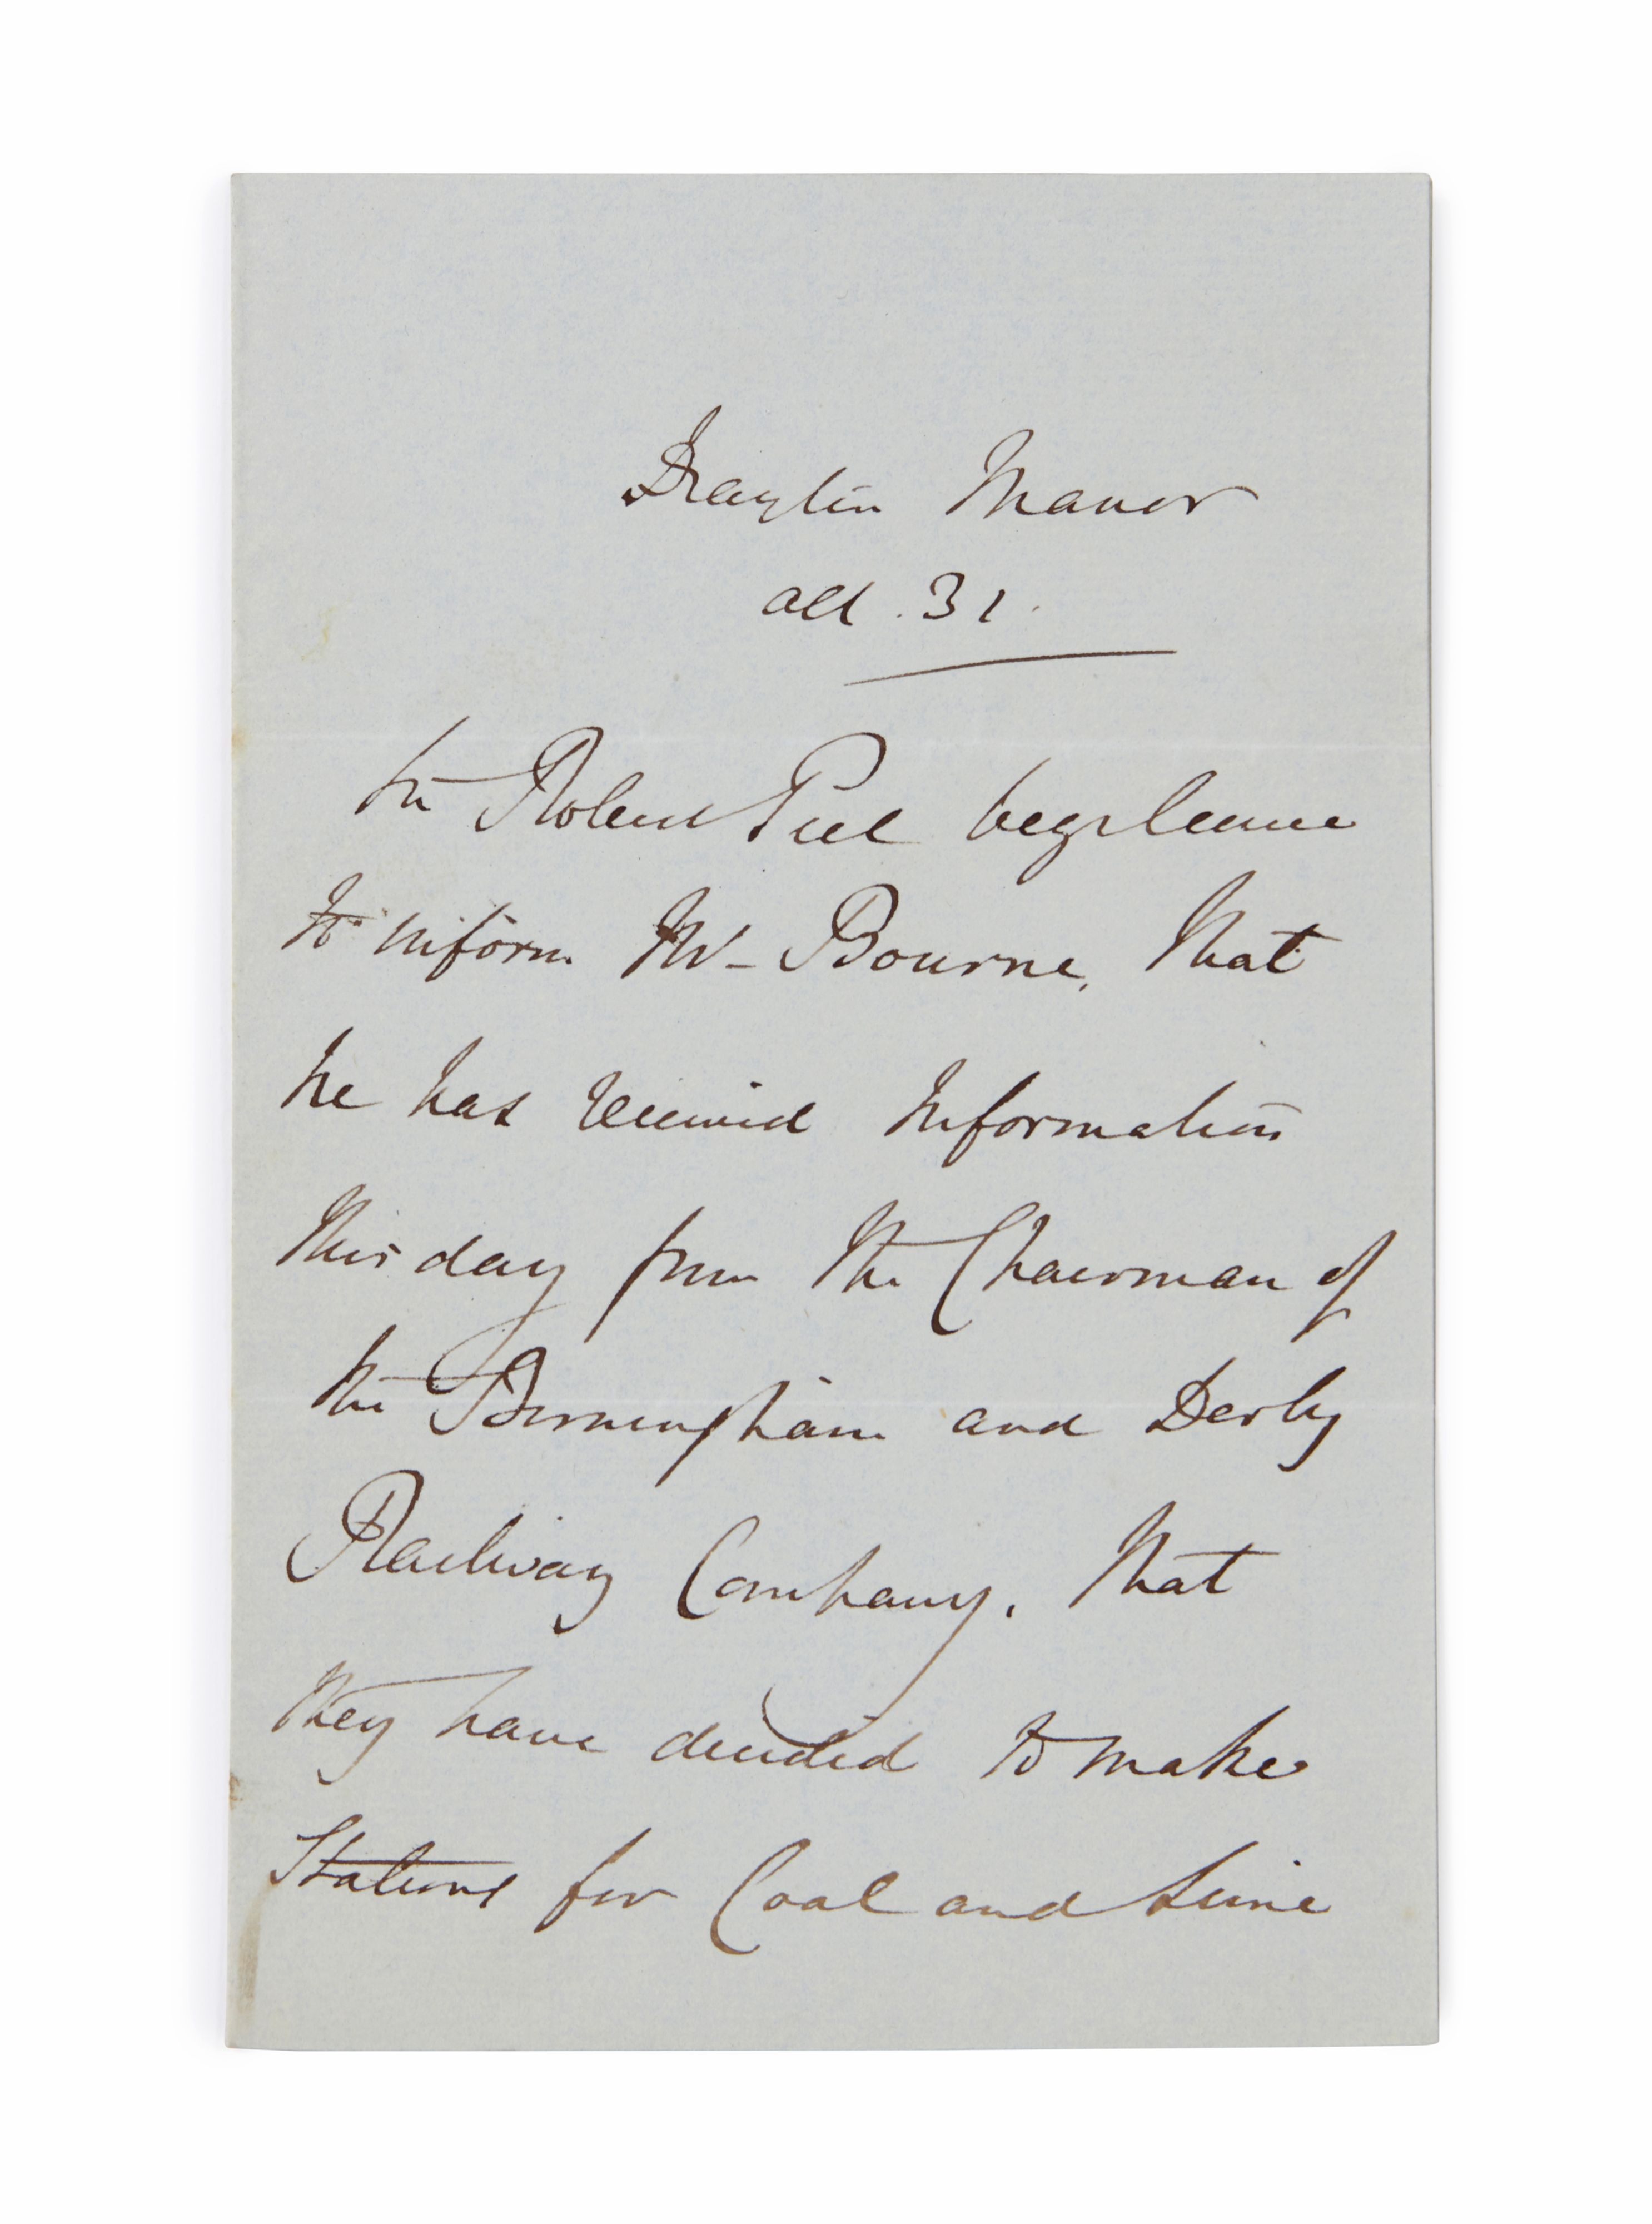 Drayton Manor
Oct. 31.
Sir Robert Peel begs leave
to inform Mr Bourne, that
he has received Information
this day from the Chairman of
the Birmingham and Derby
Railway Company, that
they have decided to make
Stations for Coal and Lime